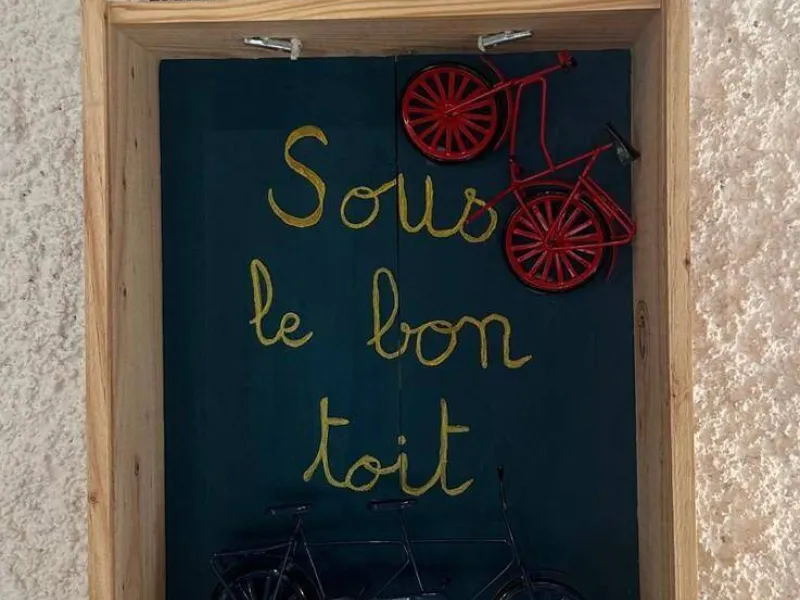 Sous
le bon
toit